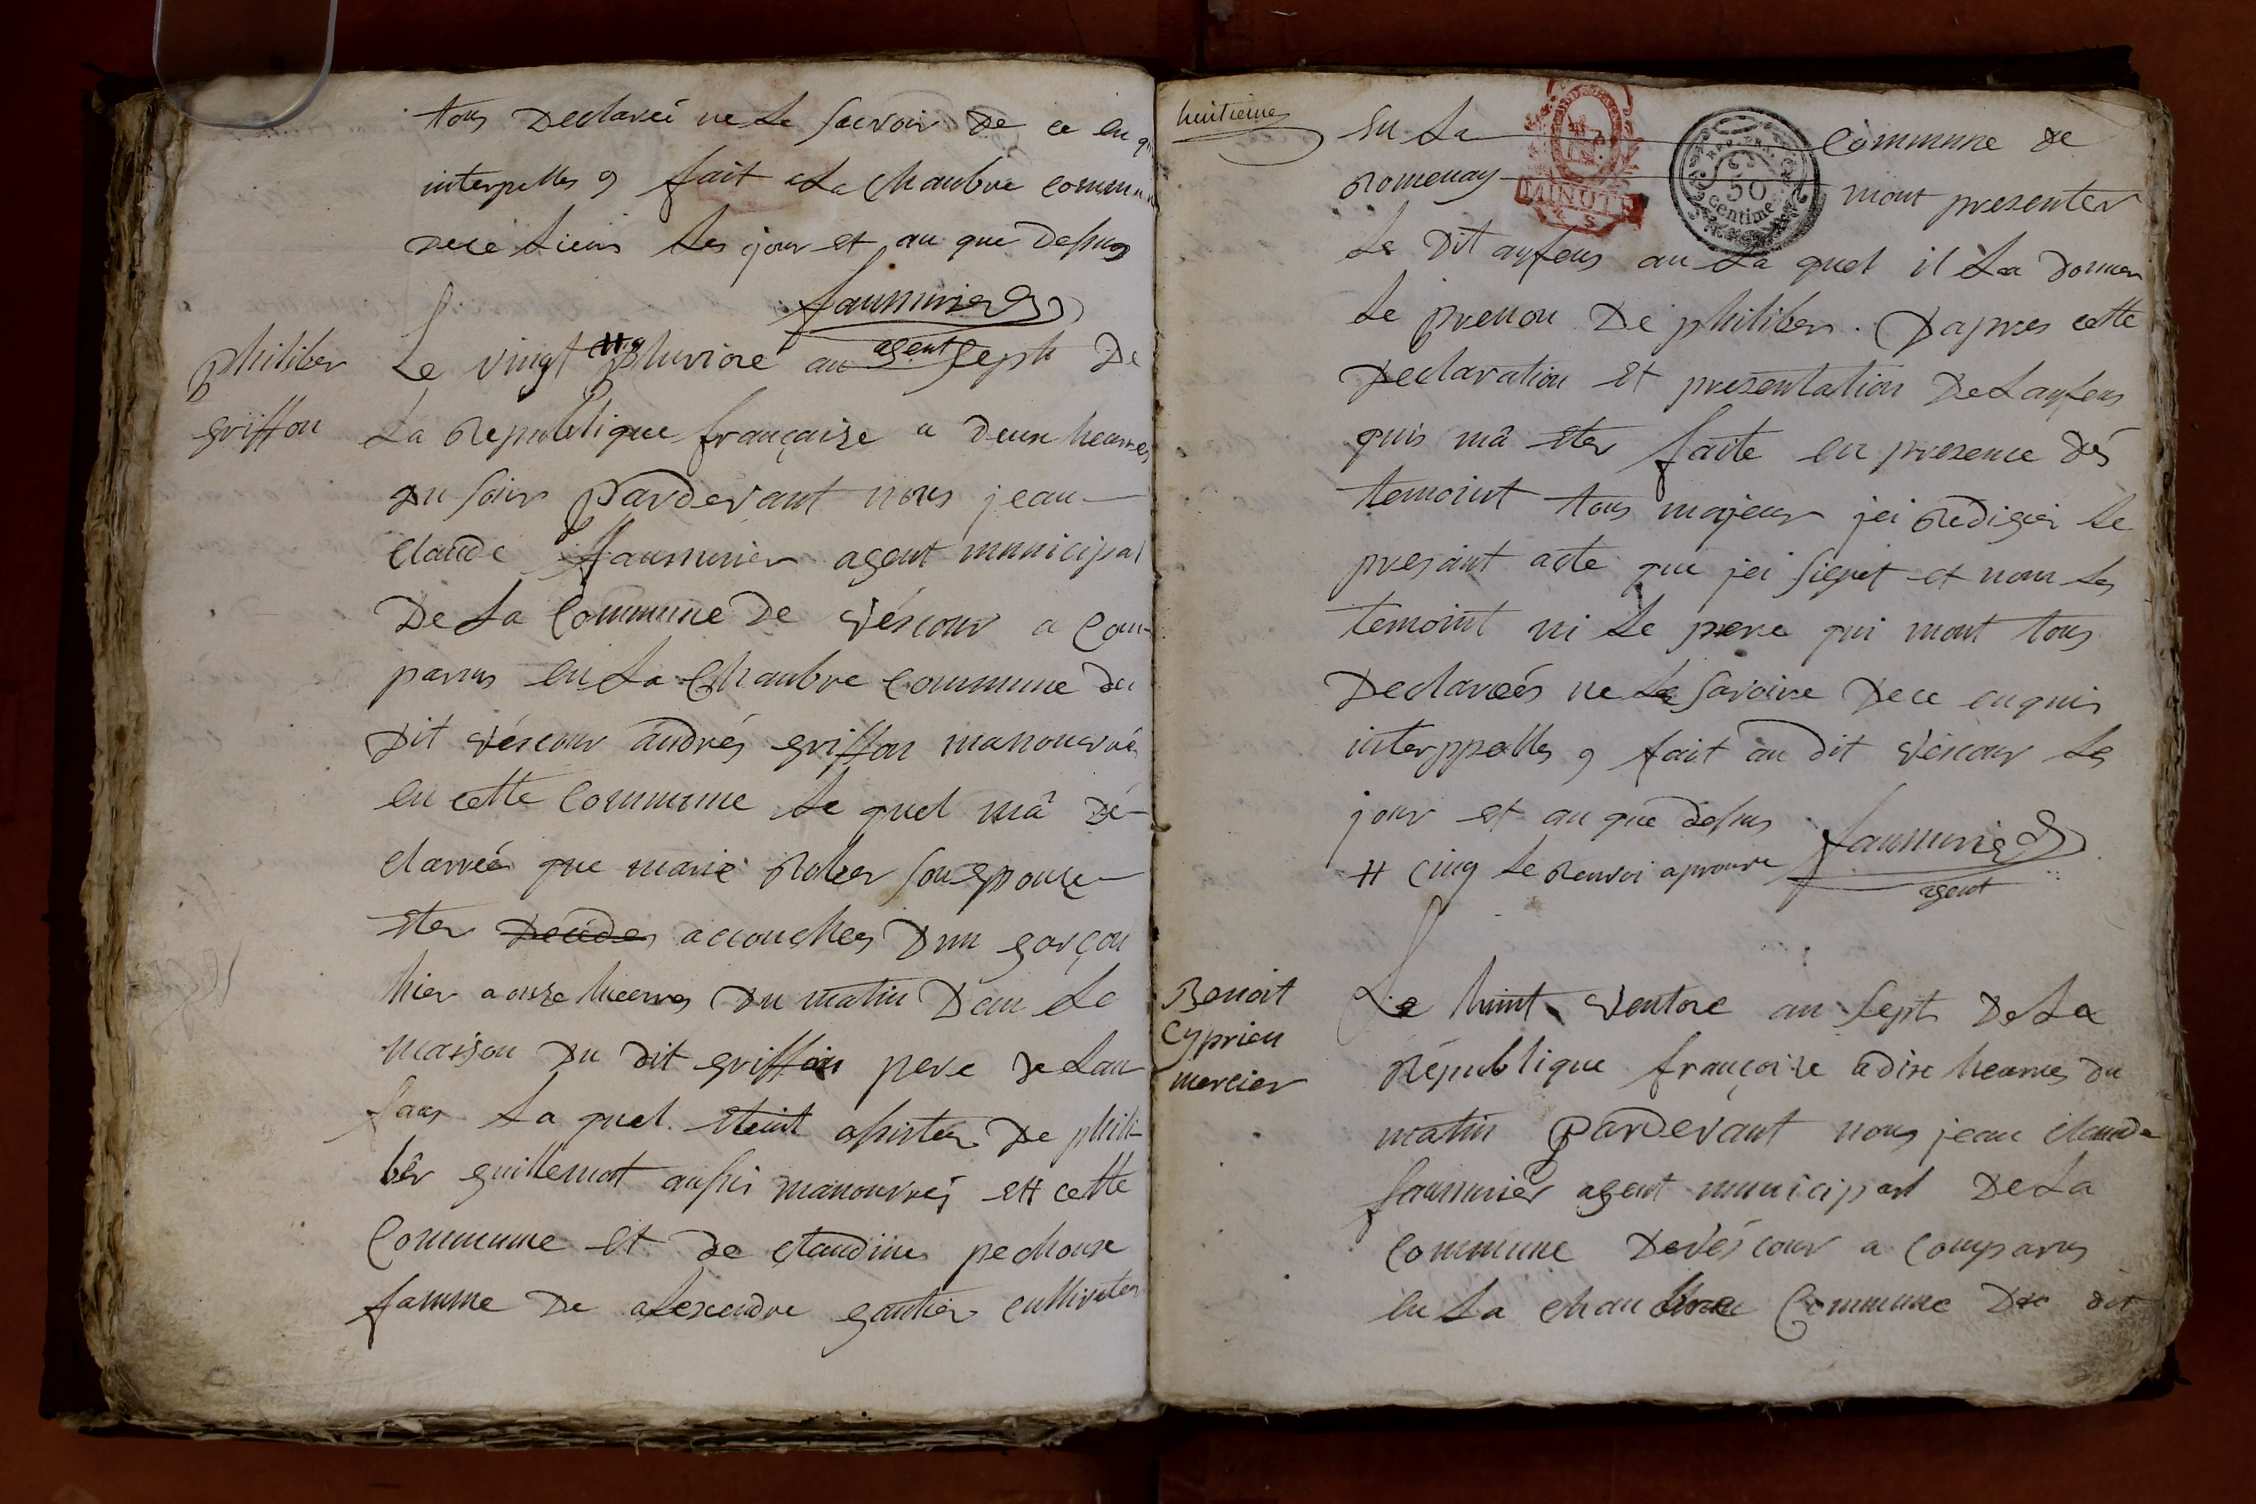 tous Declareé ne Le Savoir De ce en qui
interpelles 9 fait a La Chanbre commune
dece Lieux Les jour et an que Dessus
faummier
agent
philiber
griffon
Le vingt # pluviose an Sept De
La Republique française a Deux heures
Du soir pardevant nous jean
claude faummier agent municipal
De La Commune De Véscour a Com-
parus en La Chanbre Commune du
Dit véscour andrés griffon manouvré
en cette Commune Le quel mâ Dé-
clarreé que marie Rober son Epouze
eter Décides accouchés Dun garçon
hier a onze heurres Du matin Dan La
maison Du dit griffon pere de Lan
fans La quel eteint assister De phili-
bér guillemot aussi manouvrés en cette
Commune et de claudine pechoux
famme De alexendre gautier cultivater
huitieme
en La Commune de
Romenay mont presenter
MINUTE
REP. FRA.
50
Centime
Le Dit anfens au La quel il La Donner
Le prenon De philiber. Dapres cette
Declaration et presentation De Lanfens
quis mâ eter faite en presence Dés
temoint tous majeur jei Redigér Le
presant acte que jei signét et nom Les
temoint ni Le pere qui mont tous
Declareés ne Le Savoire De ce en quis
interppelles 9 fait au dit véscour Les
jour et an que dessus
faummier
agent
# Cinq Le Renvoi aprouve
Benoit
Cyprien
mercier
Le huint ventose an Sept De La
République françoise a dix heurres du
matin pardevant nous jean claude
faummier agent municipal De La
Commune De véscour a Comparus
en La chanbre Commune Du dit